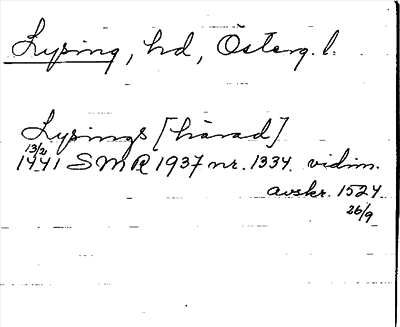 Lysing, hd, Österg. l.
Lysings [härad]
13/2
1441 SMR 1937 nr. 1334. vidim.
avskr. 1524
26/9